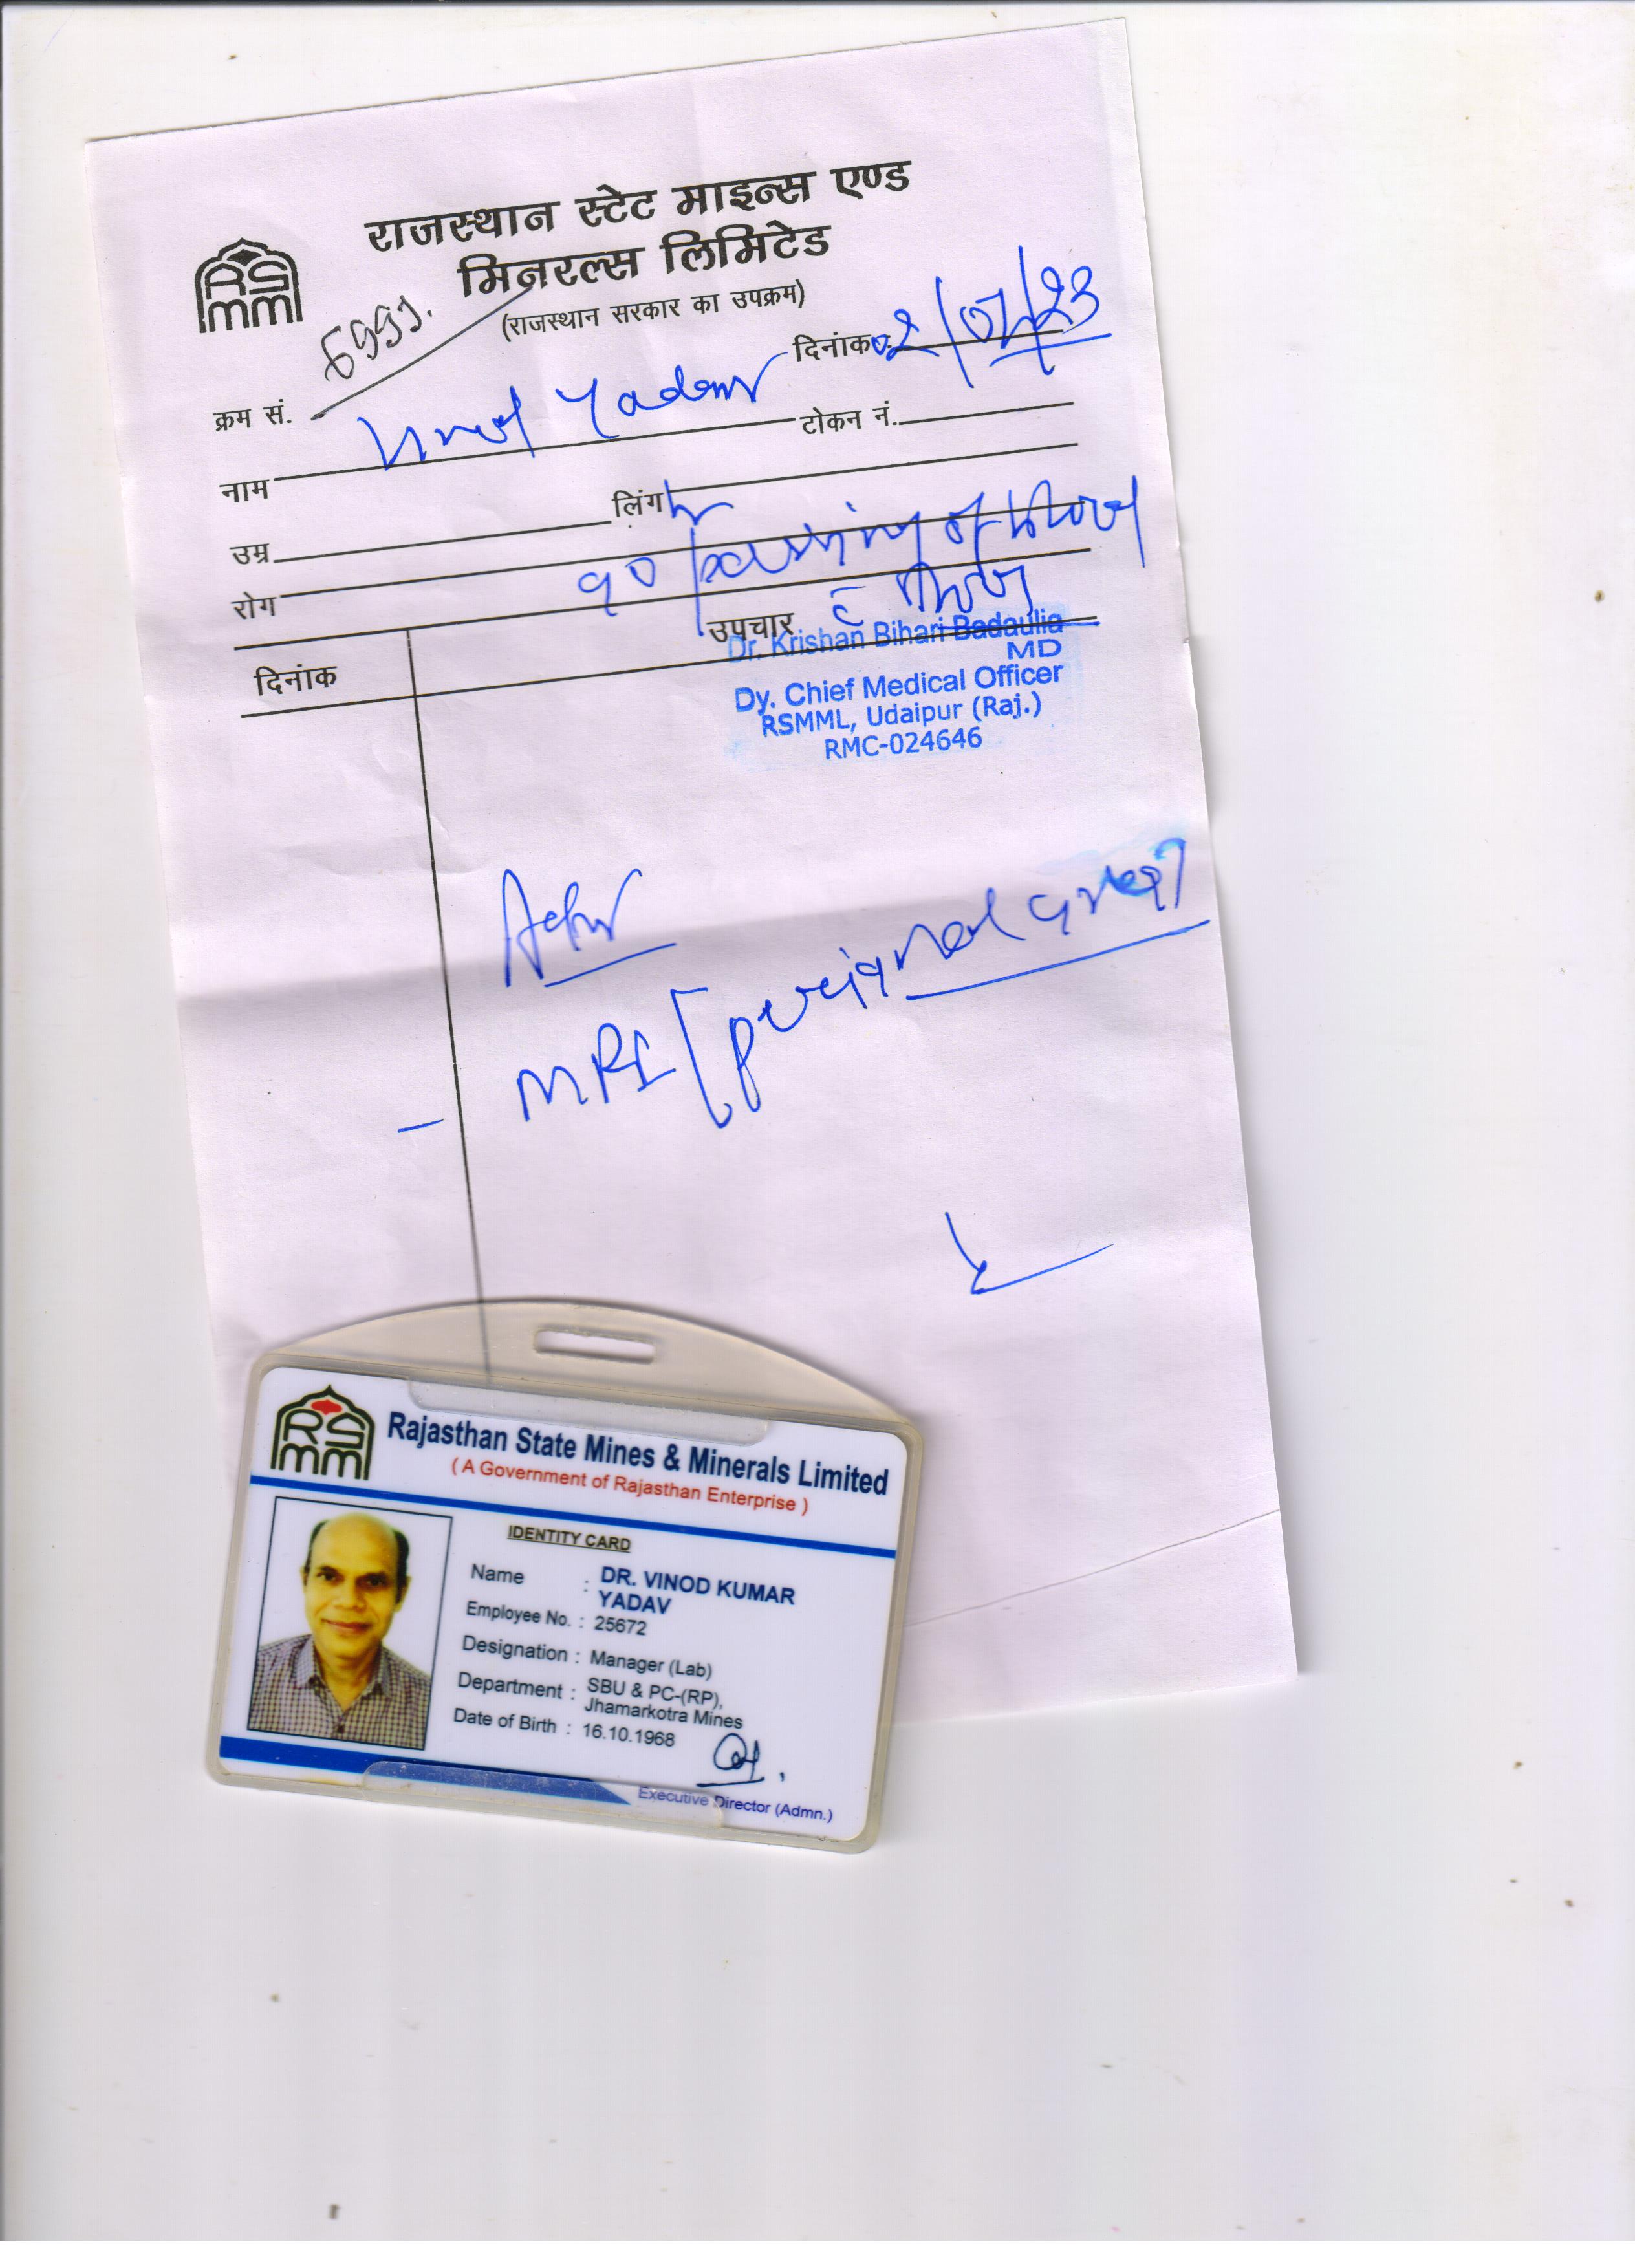 राजस्थान स्टेट माइन्स एण्ड
मिनरल्स लिमिटेड
(राजस्थान सरकार का उपक्रम)
RS
mm
दिनांक 02/07/23
क्रम सं.
नाम Vinod Yadav टोकन नं.
उम्र लिंग
रोग
c/o passing of blood
दिनांक उपचार
Dr. Krishan Bihari Badaulia
MD
Dy. Chief Medical Officer
RSMML, Udaipur (Raj.)
RMC-024646
Adv
- MRI [perianal area]
RS
mm
Rajasthan State Mines & Minerals Limited
( A Government of Rajasthan Enterprise )
IDENTITY CARD
Name : DR. VINOD KUMAR
YADAV
Employee No. : 25672
Designation : Manager (Lab)
Department : SBU & PC-(RP),
Jhamarkotra Mines
Date of Birth : 16.10.1968
Executive Director (Admn.)